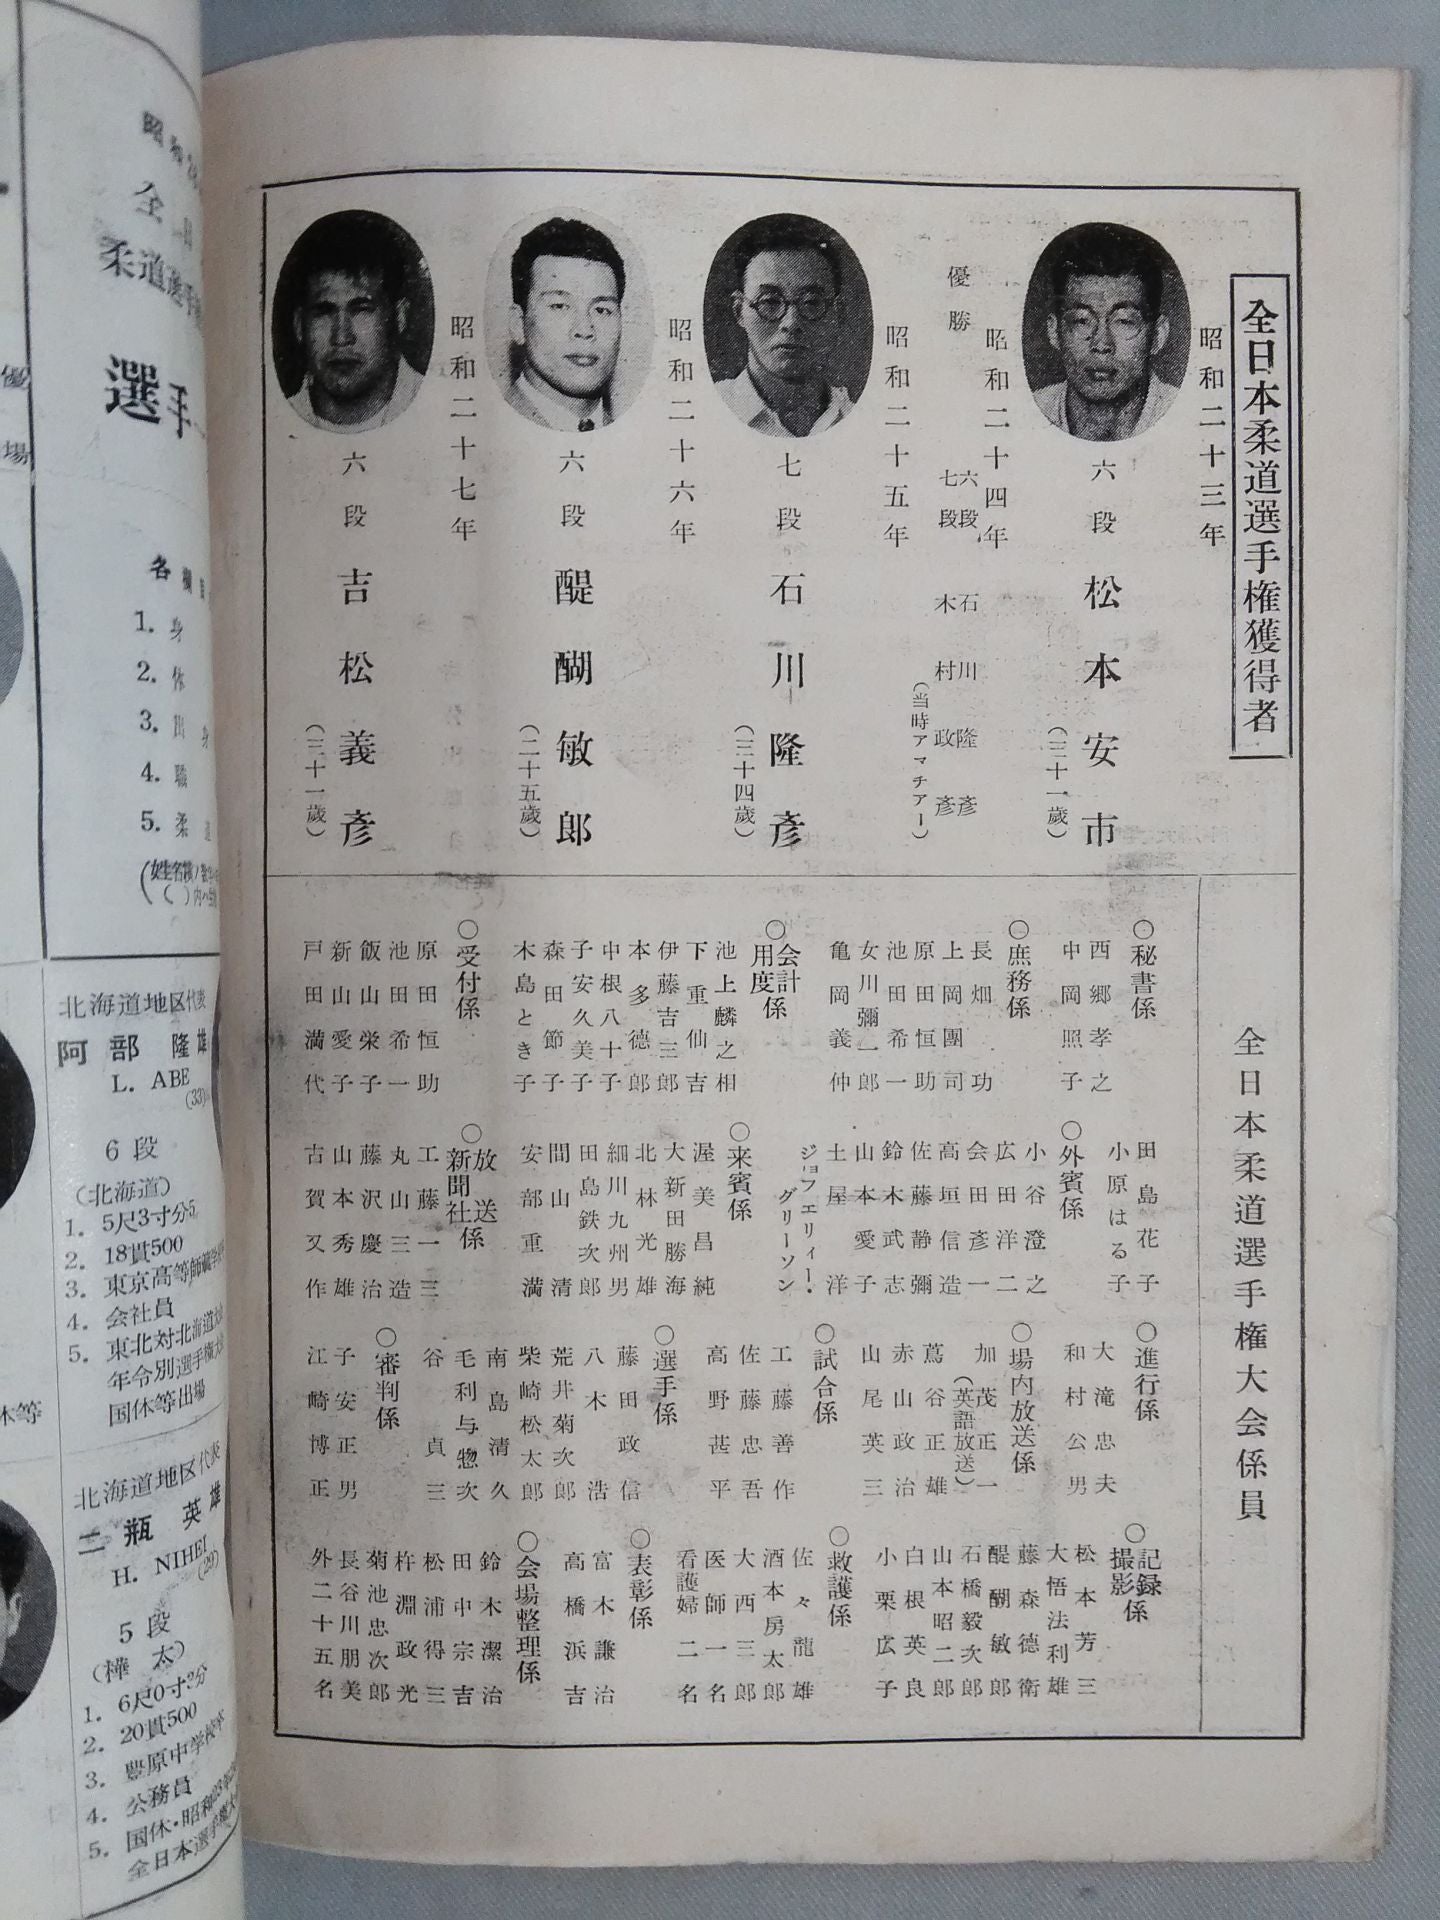 全日本柔道選手権獲得者
昭和二十三年
六段 松本安市
(三十一歳)
昭和二十四年
優勝
六段 石川隆彦
七段 木村政彦
(当時アマチアー)
昭和二十五年
七段 石川隆彦
(三十四歳)
昭和二十六年
六段 醍醐敏郎
(二十五歳)
昭和二十七年
六段 吉松義彦
(三十一歳)
全日本柔道選手権大会係員
○秘書係
西郷孝之
中岡照子
○庶務係
長畑功
上岡團司
原田恒助
池田希一
女川彌一郎
亀岡義仲
○会計用度係
池上麟之相
下重仙吉
伊藤吉三郎
本多德郎
中根八十子
子安久美子
森田節子
木島とき子
○受付係
原田恒助
池田希一
飯山栄子
新山愛子
戸田満代
田島花子
小原はる子
○外賓係
小谷澄之
広田洋二
会田彥一
高垣信造
佐藤静彌
鈴木武志
山本愛子
土屋洋
ジョフエリィー・グリーソン
○来賓係
渥美昌純
大新田勝海
北林光雄
細川九州男
田島鉄次郎
間山清
安部重満
○放送新聞社係
工藤一三
丸山三造
藤沢慶治
山本秀雄
古賀又作
○進行係
大滝忠夫
和村公男
○場内放送係
加茂正一
(英語放送)
蔦谷正雄
赤山政治
山尾英三
○試合係
工藤善作
佐藤忠吾
高野甚平
○選手係
藤田政信
八木浩
荒井菊次郎
柴崎松太郎
南島清久
毛利与惣次
谷貞三
○審判係
子安正男
江崎博正
○記録撮影係
松本芳三
大悟法利雄
藤森德衛
醍醐敏郎
石橋毅次郎
山本昭二郎
白根英良
小栗広子
○救護係
佐々龍雄
酒本房太郎
大西三郎
医師一名
看護婦二名
○表彰係
富木謙治
高橋浜吉
○会場整理係
鈴木潔治
田中宗吉
松浦得三
杵淵政光
菊池忠次郎
長谷川朋美
外二十五名
全
柔道選手
選手
優
場
1. 身
2. 体
3. 出身
4. 職
5. 柔道
北海道地区代表
阿部隆雄
L. ABE
(33)
6段
(北海道)
1. 5尺3寸分5
2. 18貫500
3. 東京高等師範学校
4. 会社員
5. 東北対北海道大
年令別選手権大
国体等出場
体等
北海道地区代表
二瓶英雄
H. NIHEI
(29)
5段
(樺太)
1. 6尺0寸2分
2. 20貫500
3. 豊原中学校卒
4. 公務員
5. 国体・昭和
全日本選手権大